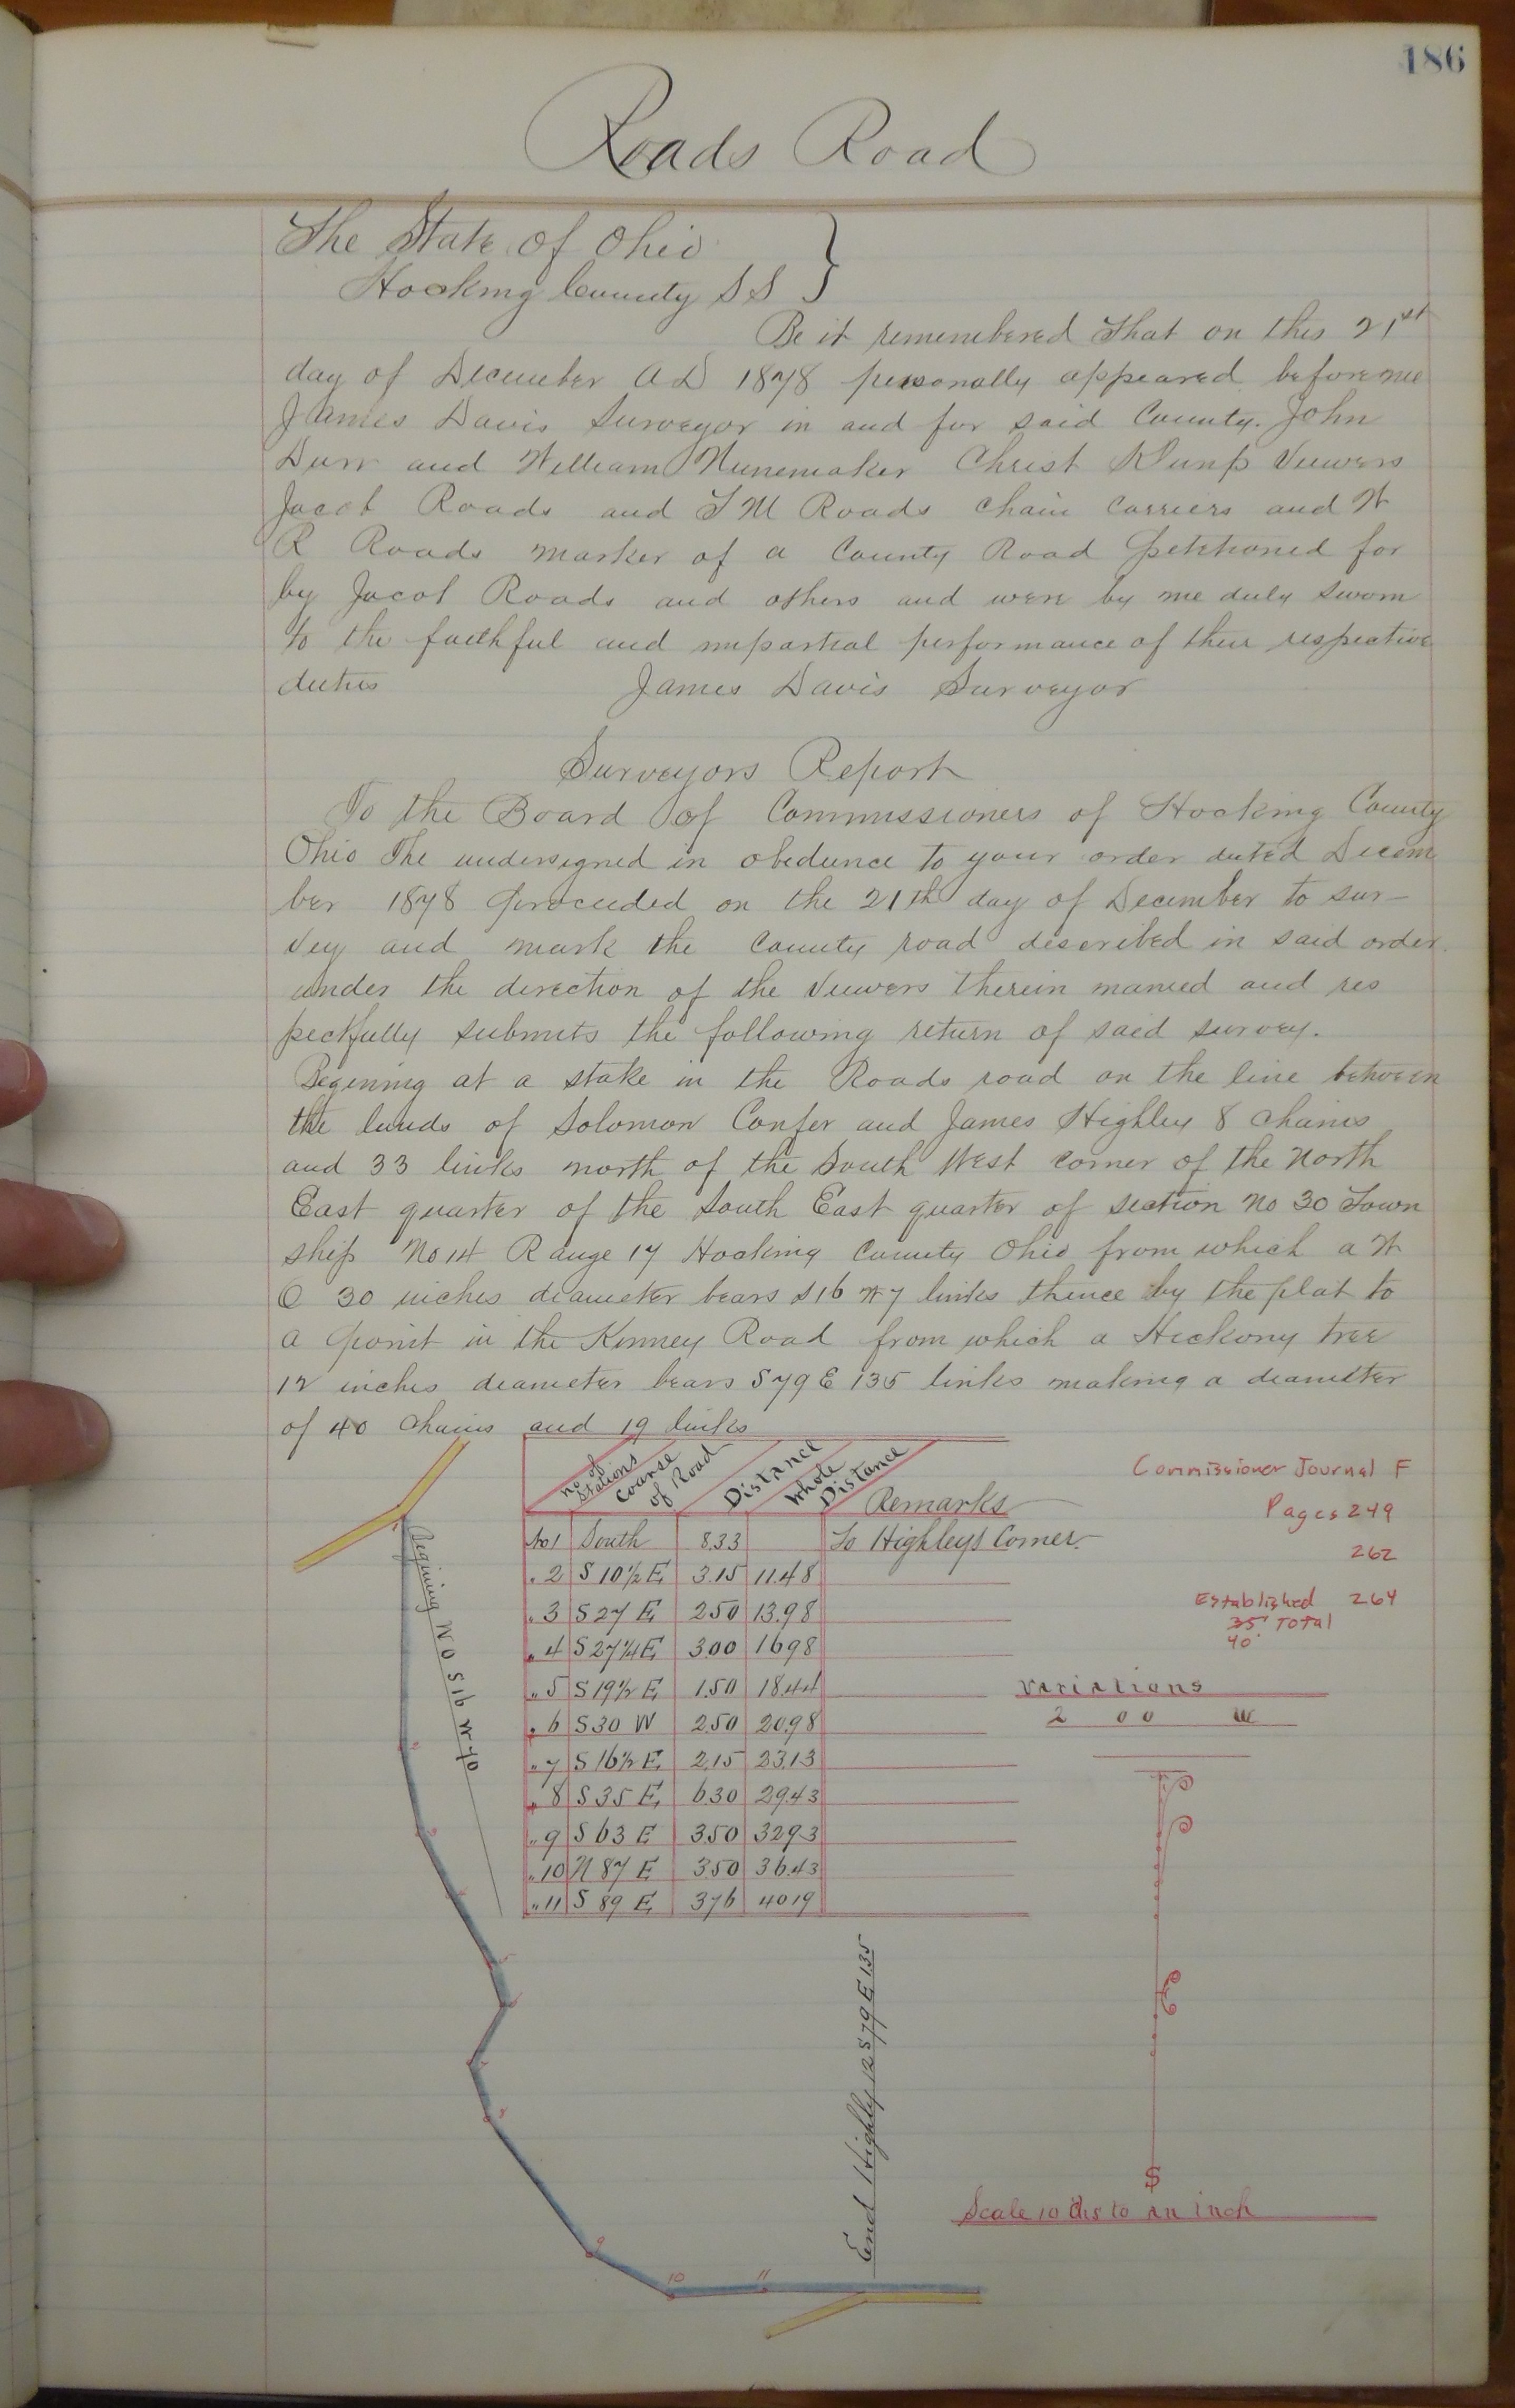 186
Roads Road
The State of Ohio
Hocking County SS
Be it remembered that on this 21st
day of December AD 1878 personally appeared before me
James Davis Surveyor in and for said County. John
Durr and William Nunemaker Christ Viewers
Jacob Roads and S M Roads chain carriers and W
R Roads marker of a County Road petitioned for
by Jacob Roads and others and were by me duly sworn
to the faithful and impartial performance of their respective
duties James Davis Surveyor
Surveyors Report
To the Board of Commissioners of Hocking County
Ohio The undersigned in obedience to your order dated Decem
ber 1878 proceeded on the 21th day of December to sur-
vey and mark the County road described in said order
under the direction of the Viewers therein named and res
pectfully submits the following return of said survey.
Begening at a stake in the Roads road on the line between
the lands of Solomon Confer and James Highley 8 chains
and 33 links north of the South West corner of the North
East quarter of the South East quarter of section No 30 Town
ship No 14 Range 17 Hocking County Ohio from which a W
O 30 inches diameter bears S 16 W 7 links thence by the plat to
a point in the Kinney Road from which a Hickory tree
12 inches diameter bears S 79 E 135 links making a diameter
of 40 chains and 19 links
No of Stations Coarse of Road Distance Whole Distance Remarks
No 1 South 8.33 To Highleys Corner
" 2 S 10½ E 3.15 11.48
" 3 S 27 E 2.50 13.98
" 4 S 27¼ E 3.00 16.98
" 5 S 19½ E 1.50 18.44
" 6 S 30 W 2.50 20.98
" 7 S 16½ E 2.15 23.13
" 8 S 35 E 6.30 29.43
" 9 S 63 E 3.50 32.93
" 10 N 87 E 3.50 36.43
" 11 S 89 E 3.76 40.19
Commissioner Journal F
Pages 249
262
Established 264
35' Total
40'
Variations
2 00 W
Begining W O S 16 W 70
End Highly 12 S 79 E 135
8
9
10
11
S
Scale 10 chs to an inch